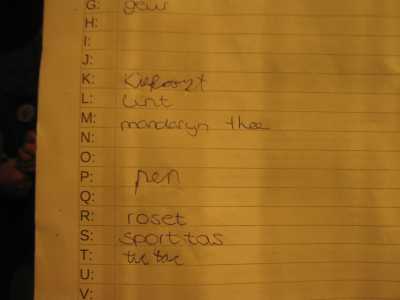 G: geur
H:
I:
J:
K:
L: Lint
M: mandaryn thee
N:
O:
P: pen
Q:
R: roset
S: sport tas
T: tic tac
U:
V: